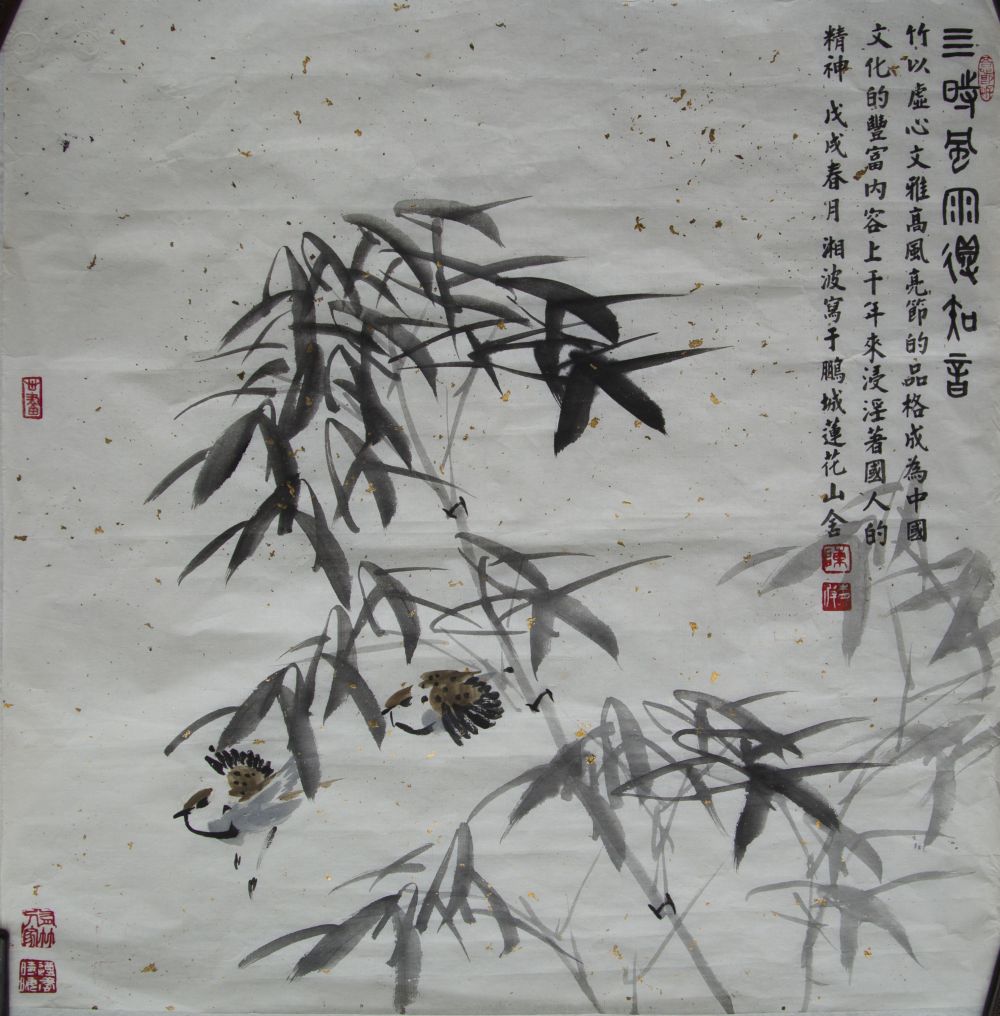 時風雨知音
竹以虛心文雅高風亮節的品格成為中國
文化的豐富内容上千年來浸淫著國人的
精神 戊戌春月 湘波寫于鵬城蓮花山舍
陳